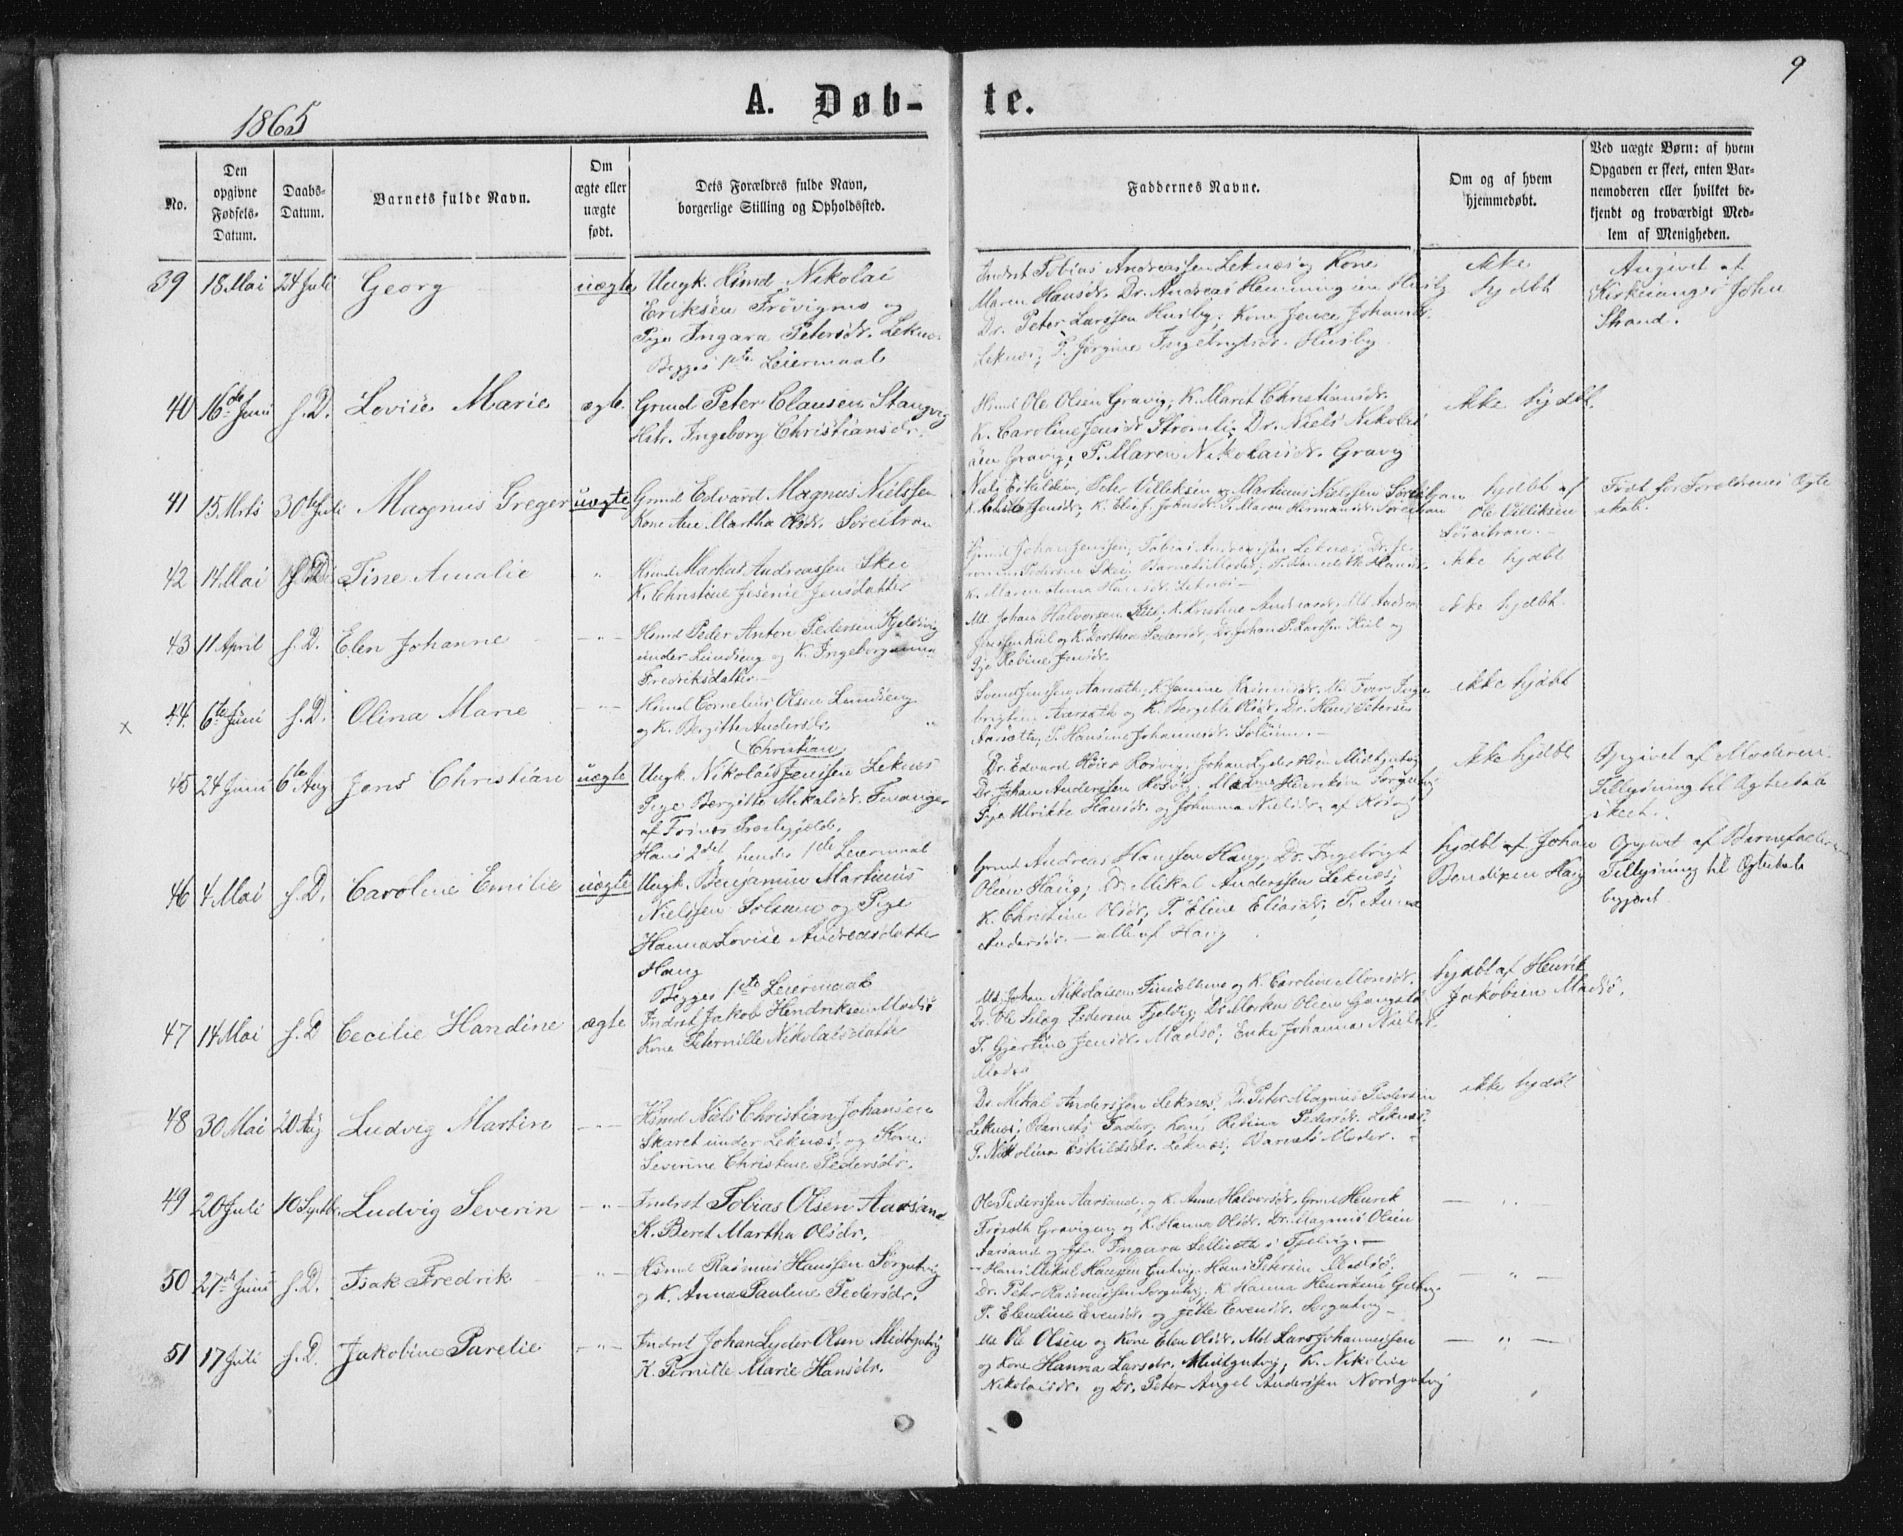 9
1865
A. Døb-te.
No.
Den opgivne Fødsels-Datum.
Daabs-Datum.
Barnets fulde Navn.
Om ægte eller uægte født.
Dets Forældres fulde Navn, borgerlige Stilling og Opholdssted.
Faddernes Navne.
Om og af hvem hjemmedøbt.
Ved uægte Børn: af hvem Opgaven er skeet, enten Barnemoderen eller hvilket bekjendt og troværdigt Medlem af Menigheden.
39 18 Mai 24 Juli Georg uægte
Ungk. Nikolai
Eriksen og
Pige Ingara Petersdr. Leknes
Begges 1ste Leiermaal
Indrst Tobias Andreassen Leknes og Kone
Maren Hansdr. Dr. Andreas Henning
Dr. Peter Larssen Husby; Kone
Leknes; P. Jørgine Ingebrigtsdr. Husby
ikke hjdbt
Angivet af
Kirkesanger John
Strand.
40 16de Juni s. D. Lovise Marie ægte
Grmd Peter Clausen Stangvig
Hstr. Ingeborg Christiansdr.
Ole Olsen Gravig; K. Marit Christiansdr.
K. Caroline Jensdr. Dr. Niels Nikolai
sen Gravig; P. Maren Nikolaisdr. Gravig
ikke hjdbt
41 15 Mrts 30te Juli Magnus Greger uægte
Grmd Edvard Magnus Nielssen
Kone Ane Martha Olsdr.
Peter Villiksen og Martinus Nielssen
hjdbt af
Ole Villiksen
Født før Forældrenes Ægte
skab.
42 14 Mai s. D. Tine Amalie "
Hsmd Markus Andreassen Skei
K. Christine Jensdatter
Grmd Johan Jenssen; Tobias Andreassen Leknes
Pedersen Skei; Barnets Moder;
K. Maren Anna Hansdr. Leknes
ikke hjdbt
43 11 April s. D. Elen Johanne - " -
Hsmd Peder Anton Pedersen
under Lundseng og K. Ingeborganna
Fredriksdatter
Johan Halvorsen
og K. Dorthea Pedersdr. Dr. Johan P. Larssen Kiil og
Pige Robine Jensdr.
ikke hjdbt
x 44 6te Juni s. D. Olina Marie - " -
Hsmd Cornelius Olsen Lundseng
og K. Bergitte Andersdr.
K. Bergitte Olsdr. Dr. Hans Petersen
P. Hansine Johannesdr. Solsem.
ikke hjdbt
45 24 Juni 6te Aug Jens Christian uægte
Christian
Ungk. Nikolai Jenssen Leknes
Pige Bergitte Mikalsdr.
af Præstegjeld.
Hans 2det hendes 1ste Leiermaal
Dr. Edvard Høier Rosvig; Johan Lyder Olsen Midtgutvig
Dr. Johan Anderssen Rosvig;
Pige Ulrikke Hansdr. og Johanna Nielsdr. af Rosvig
ikke hjdbt
Opgivet af Moderen
Tillysning til Ægteskab
skeet.
46 4 Mai s. D. Caroline Emilie uægte
Ungk. Benjamin Martinus
Nielssen Solsem og Pige
Hanna Lovise Andreasdatter
Haug
Begges 1ste Leiermaal
Grmd Andreas Hanssen Haug; Dr. Ingebrigt
Olsen Haug; Dr. Mikal Anderssen Leknes;
K. Christine Olsdr; P. Eline Eliasdr; P. Anna
Andersdr. – alle af Haug
hjdbt af Johan
Haug
Opgivet af Barnefaderen
Tillysning til Ægteskab
begjæret.
47 14 Mai s. D Cecilie Handine ægte
Indrst Jakob Hendriksen Madsø
Kone Peternille Nikolaisdatter
Johan Nikolaisen og K. Caroline
Dr. Ole Selag Pedersen Fjelvig; Dr. Markus Olsen
P. Gjertine Jensdr. Madsø; Enke Johanna Nielsdr.
Madsø
hjdbt af Henrik
Jakobsen Madsø.
48 30 Mai 20 Aug Ludvig Martin - " -
Hsmd Niels Christian Johansen
Skaret under Leknes, og Kone
Severine Christine Pedersdr.
Dr. Mikal Anderssen Leknes; Dr. Peter Magnus Pedersen
Leknes; Barnets Fader; Kone Pedersdr. Leknes;
P. Nikolina Eskildsdr. Leknes; Barnets Moder.
ikke hjdbt
49 20 Juli 10 Septbr. Ludvig Severin - " -
Indrst Tobias Olsen Aarsand
K. Beret Martha Olsdr.
Ole Pederssen Aarsand, og K. Anne Halvorsdr. Grmd Henrik
og K. Hanna Olsdr. Dr. Magnus Olsen
Aarsand og Ingara i Fjelvig.
— " —
50 27de Juni s. D. Isak Fredrik - " -
Hsmd Rasmus Hanssen Sørgutvig
og K. Anna Pauline Pedersdr.
Hans Mikal Hanssen Gutvig. Hans Petersen Madsø;
Dr. Peter Rasmussen Sørgutvig; K. Hanna Gutvig.
P. Elendine Evensdr. og Jette Evensdr. Sørgutvig
— " —
51 17 Juli s. D. Jakobine Parelie - " -
Indrst Johan Lyder Olsen Midtgutvig
K. Pernille Marie Hansdr.
Ole Olsen og Kone Elen Olsdr. Lars Johannessen
og Kone Hanna Larsdr. Midtgutvig; K. Nikoline
Nikolaisdr. og Dr. Peter Angel Anderssen Nordgutvig
— " —